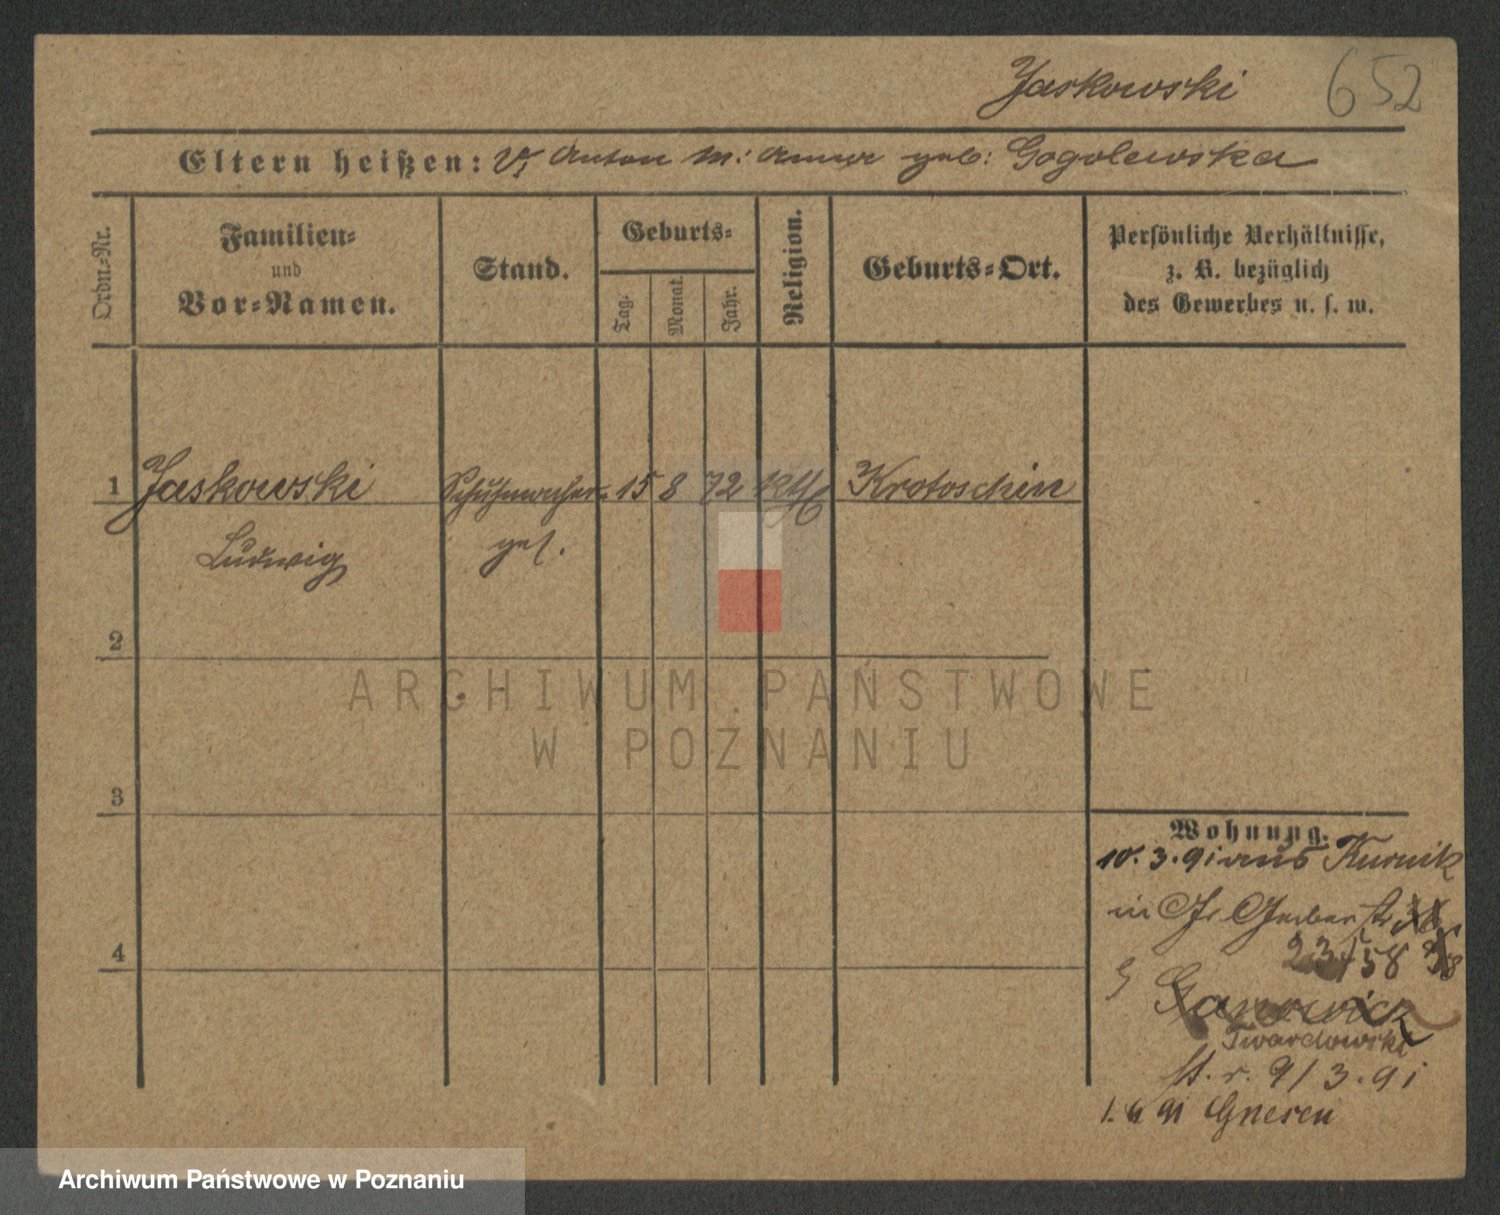 Jaskowski 652
Eltern heißen: V: Anton M: Anna geb: Gogolewska
Ordn.-Nr.
Familien-
und
Vor-Namen.
Stand.
Geburts-
Tag.
Monat.
Jahr.
Religion.
Geburts-Ort.
Persönliche Verhältnisse,
z. B. bezüglich
des Gewerbes u. s. w.
1 Jaskowski Schuhmacher- 15 8 72 kth Krotoschin
Ludwig ges.
2
3
4
Wohnung.
10.3.91 aus Kurnik
in Gr. Gerberstr
23/58
Ganowicz
Twardowski
St. r. 9/3.91
1.6 91 Gnesen
ARCHIWUM PAŃSTWOWE
W POZNANIU
Archiwum Państwowe w Poznaniu